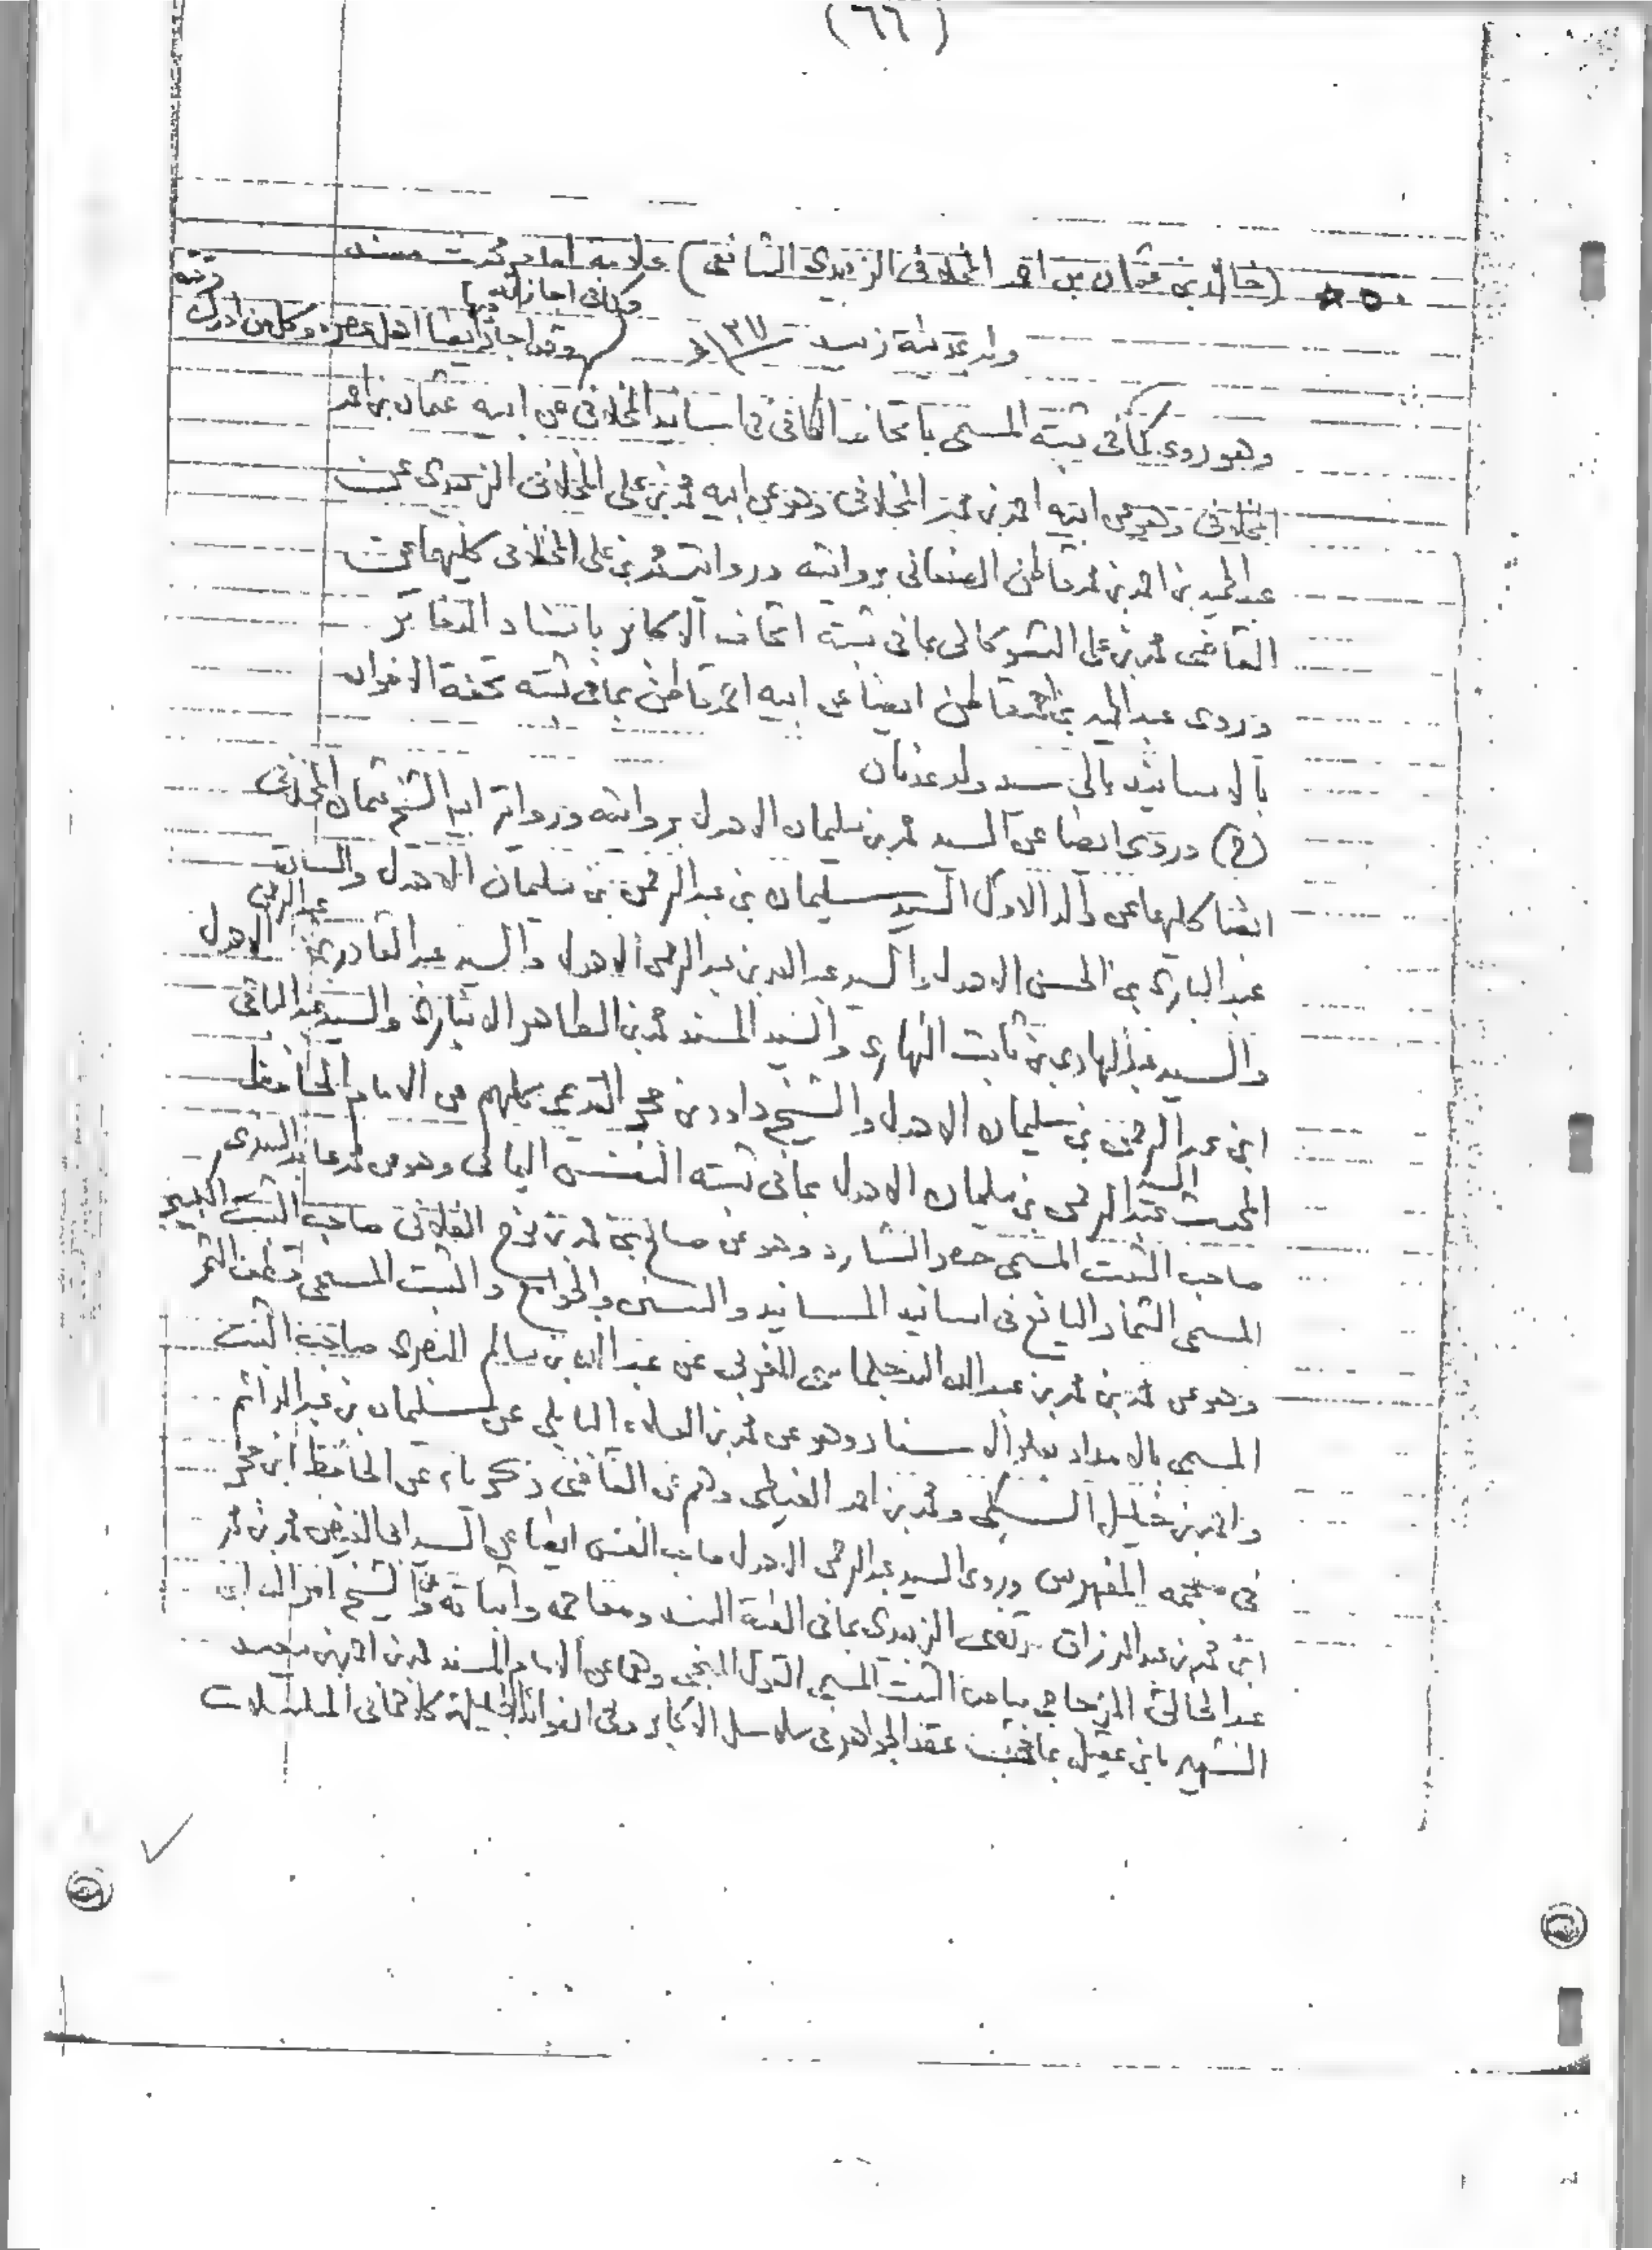 (٦٦)
٥٠ * (خالد بن عثمان بن احمد المخلافي الزبيدي الشافعي) علامه امام محدث مسند
ولد بمدينة زبيد وكافي اجازاته وقد اجاز ايضا اهل عصره وكل من ادرك
وهو روى كما في ثبته المسمى باتحاف الكافي في اسانيد المخلافي عن ابيه عثمان بن احمد
المخلافي وهو عن ابيه احمد بن محمد المخلافي وهو عن ابيه محمد بن علي المخلافي الزبيدي عن
عبد الحميد بن احمد بن محمد قاطن الصنعاني بروايته ورواية محمد بن علي المخلافي كليهما عن
القاضي محمد بن علي الشوكاني بما في ثبته اتحاف الاكابر باسناد الدفاتر
وروى عبد الحميد بن احمد قاطن ايضا عن ابيه احمد قاطن بما في ثبته تحفة الاخوان
بالاسانيد الى سيد ولد عدنان
(ح) وروى ايضا عن السيد محمد بن سليمان الاهدل بروايته ورواية ابيه الشيخ عثمان المخلافي
ايضا كليهما عن والد الاول السيد سليمان بن عبد الرحمن بن سليمان الاهدل والسيد
عبد الباري بن الحسن الاهدل والسيد عبد الله بن عبد الرحمن الاهدل والسيد عبد القادر بن عبد الرحمن الاهدل
والسيد عبد الهادي بن ثابت النهاري والسيد المسند محمد بن الطاهر الانباري والسيد عبد الباقي
ابن عبد الرحمن بن سليمان الاهدل والشيخ داود بن حجر القديمي كلهم عن الامام الحافظ
المحدث السيد عبد الرحمن بن سليمان الاهدل بما في ثبته النفس اليماني وهو عن محمد عابد السندي
صاحب الثبت المسمى حصر الشارد وهو عن صالح بن محمد بن نوح الفلاني صاحب الثبت الكبير
المسمى الثمار اليانع في اسانيد المسانيد والسنن والجوامع والثبت المسمى قطف الثمر
وهو عن محمد بن محمد بن عبد الله السجلماسي المغربي عن عبد الله بن سالم البصري صاحب الثبت
المسمى بالامداد بعلو الاسناد وهو عن محمد بن العلاء البابلي عن سليمان بن عبد الدائم
واحمد بن خليل السبكي ومحمد بن احمد الغيطي وهم عن القاضي زكرياء عن الحافظ ابن حجر
في معجمه المفهرس وروى السيد عبد الرحمن الاهدل صاحب النفس ايضا عن السيد ابي الفيض محمد بن محمد
ابن محمد بن عبد الرزاق مرتضى الزبيدي بما في الفية السند ومعاجمه واثباته وعن الشيخ امر الله ابن
عبد الخالق المزجاجي صاحب الثبت المسمى وهما عن الامام المسند محمد بن احمد بن سعيد
الشهير بابن عقيل بما في ثبت عقد الجواهر في سلاسل الاكابر وفي الفوائد الجليلة كلاهما في المسلسلات